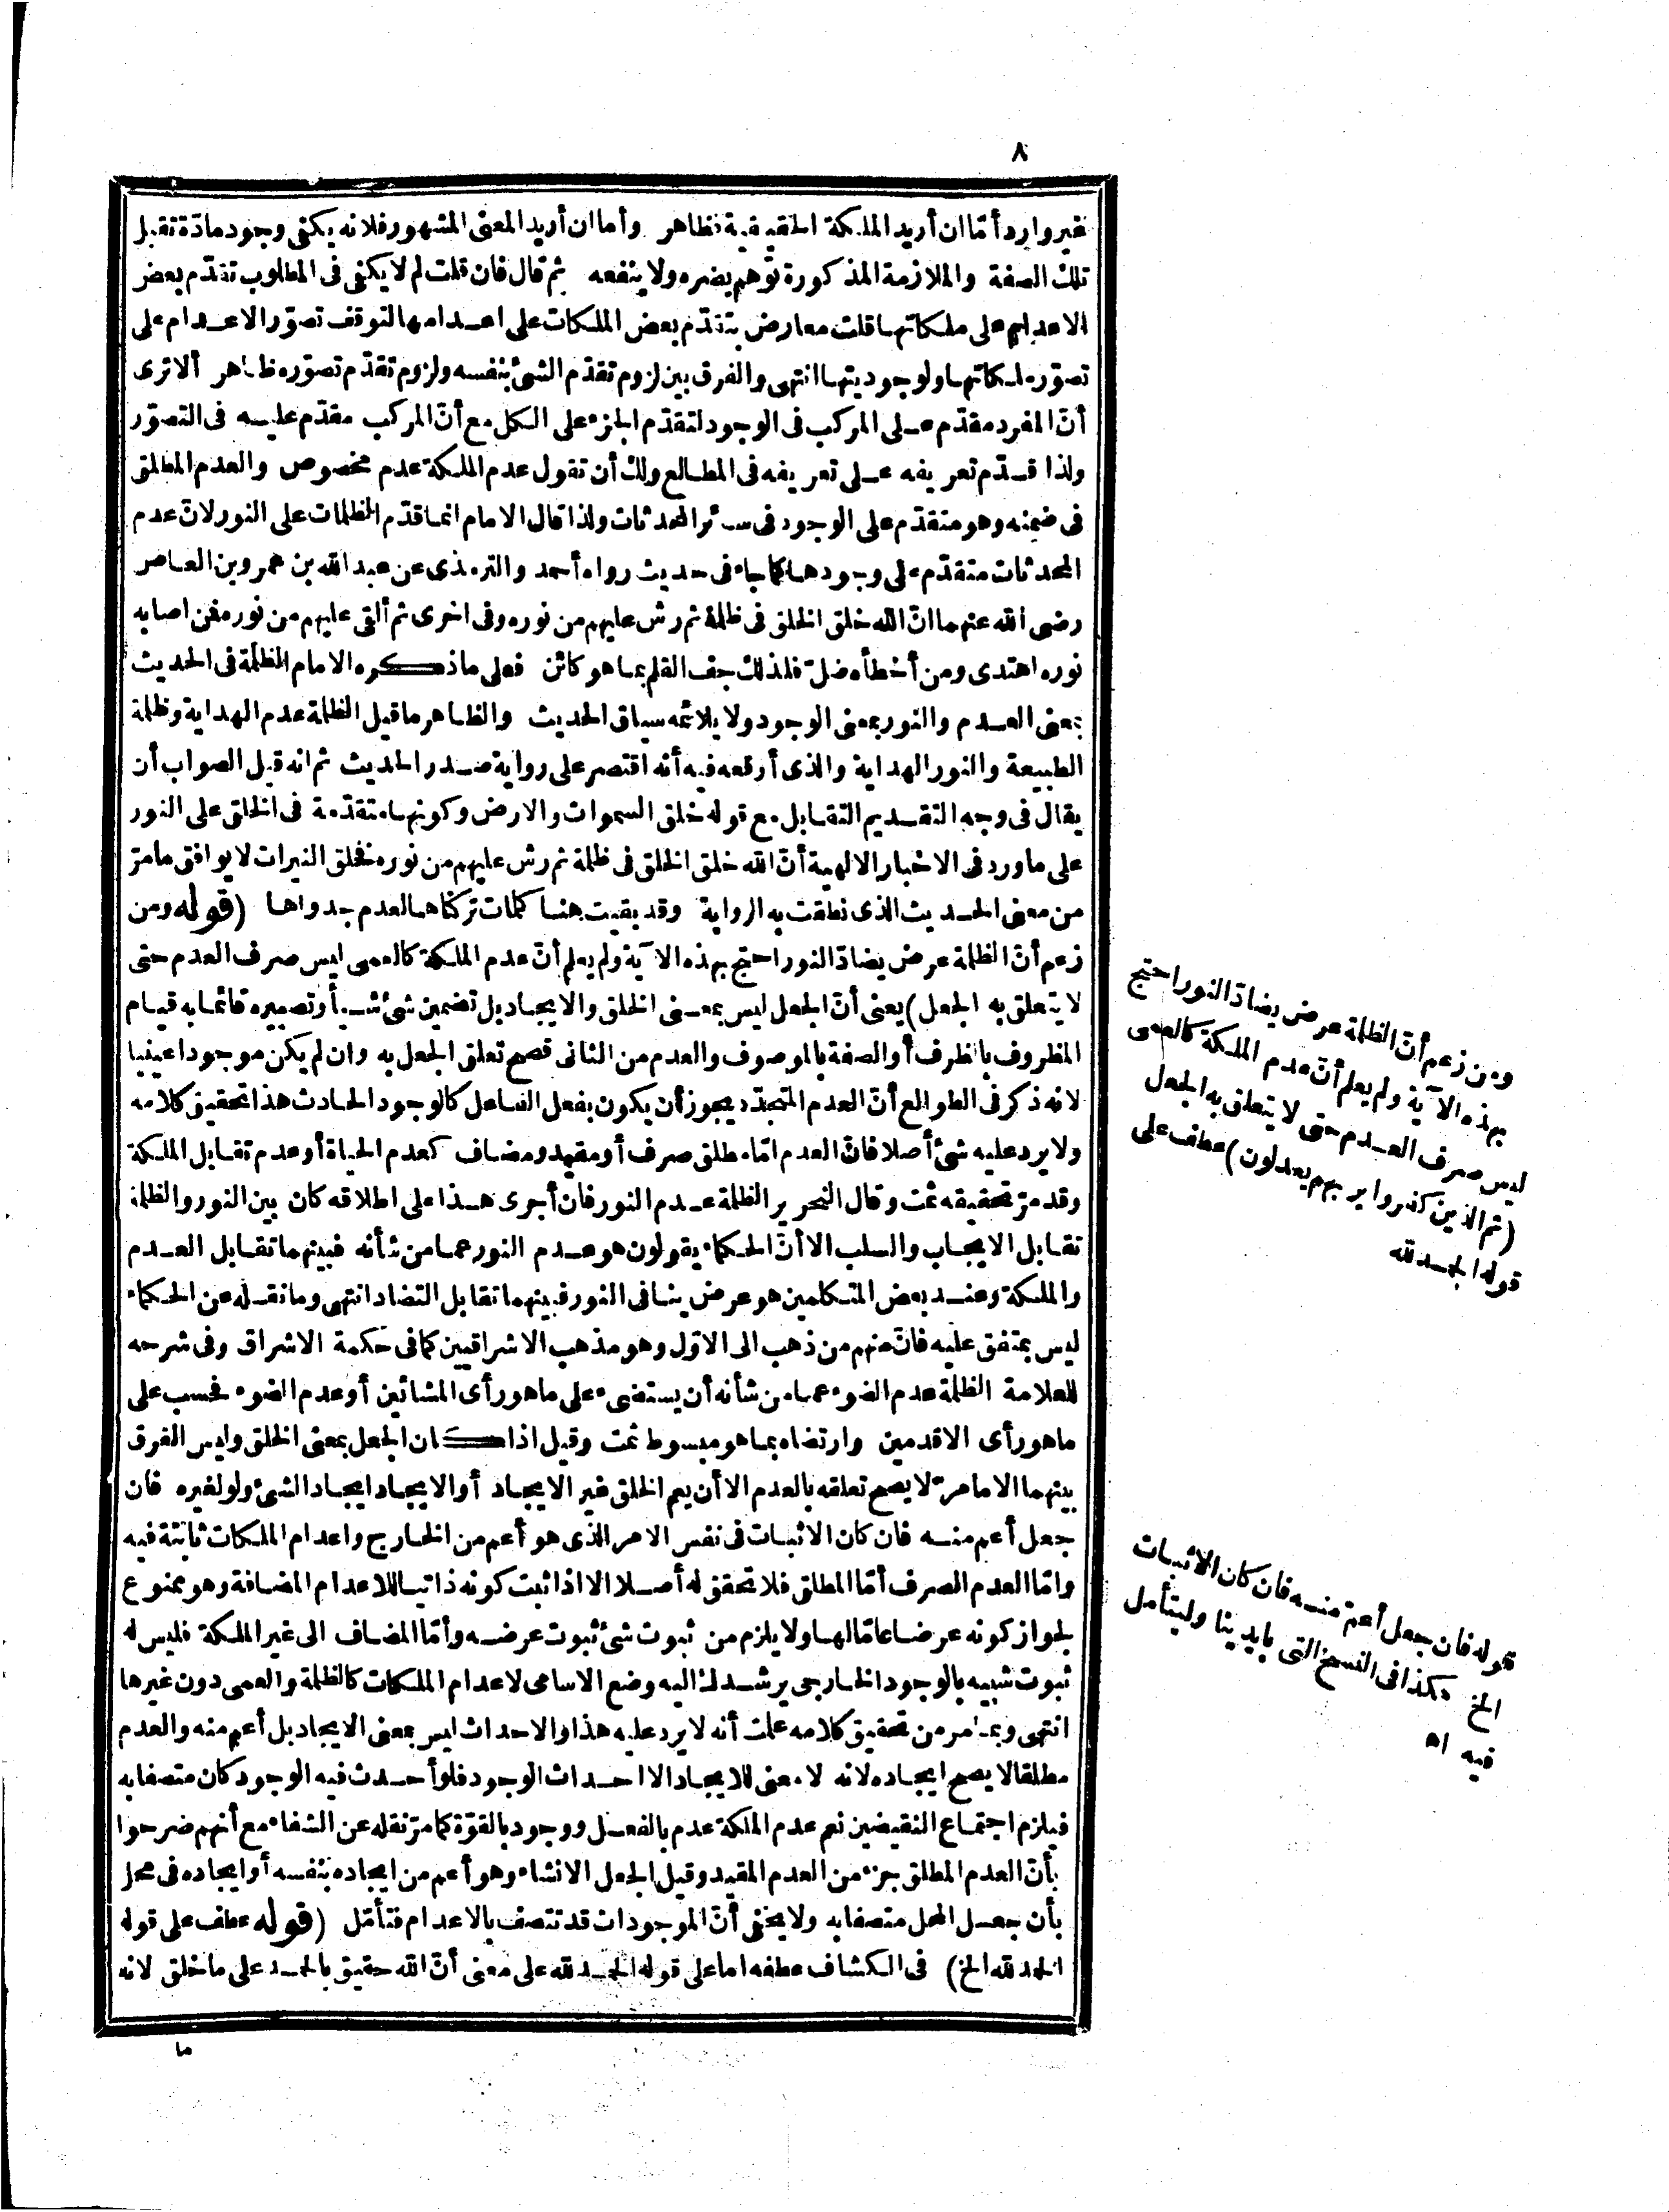 ٨
غير وارد أمّا ان أريد الملكة الحقيقية فظاهر وأما ان أريد المعنى المشهور فلانه يكفى وجود مادّة تقبل
تلك الصفة والملازمة المذكورة توّهم يضره ولا ينفعه ثم قال فان قلت لم لا يكفى فى المطلوب تقدّم بعض
الاعدام على ملكاتها قلت معارض بتقدّم بعض الملكات على اعدامها لتوقف تصوّر الاعدام على
تصوّر ملكاتها ولوجوديتها انتهى والفرق بين لزوم تقدّم الشئ بنفسه ولزوم تقدّم تصوّره ظاهر ألا ترى
أنّ المفرد مقدّم على المركب فى الوجود لتقدّم الجزء على الكل مع أنّ المركب مقدّم عليه فى التصوّر
ولذا قدّم تعريفه على تعريفه فى المطالع ولك أن تقول عدم الملكة عدم مخصوص والعدم المطلق
فى ضمنه وهو متقدّم على الوجود فى سائر المحدثات ولذا قال الامام انما قدّم الظلمات على النور لانّ عدم
المحدثات متقدّم على وجودها كما جاء فى حديث رواه أحمد والترمذى عن عبد الله بن عمرو بن العاص
رضى الله عنهما انّ الله خلق الخلق فى ظلمة ثم رش عليهم من نوره وفى اخرى ثم ألقى عليهم من نوره فمن اصابه
نوره اهتدى ومن أخطأه ضلّ فلذلك جف القلم بما هو كائن فعلى ما ذكره الامام الظلمة فى الحديث
بمعنى العدم والنور بمعنى الوجود ولا يلائمه سياق الحديث والظاهر ما قيل الظلمة عدم الهداية وظلمة
الطبيعة والنور الهداية والذى أوقعه فيه أنه اقتصر على رواية صدر الحديث ثم انه قيل الصواب أن
يقال فى وجه التقديم التقابل مع قوله خلق السموات والارض وكونها متقدّمة فى الخلق على النور
على ما ورد فى الاخبار الالهية أنّ الله خلق الخلق فى ظلمة ثم رش عليهم من نوره فخلق النيرات لا يوافق ما مرّ
من معنى الحديث الذى نطقت به الرواية وقد بقيت هنا كلمات تركناها لعدم جدواها (قوله ومن
زعم أنّ الظلمة عرض يضادّ النور احتج بهذه الآية ولم يعلم أنّ عدم الملكة كالعمى ليس صرف العدم حتى
لا يتعلق به الجعل) يعنى أنّ الجعل ليس بمعنى الخلق والايجاد بل تضمين شئ شيأ وتصييره قائما به قيام
المظروف بالظرف أو الصفة بالموصوف والعدم من الثانى فصح تعلق الجعل به وان لم يكن موجودا عينيا
لانه ذكر فى الطوالع أنّ العدم المتجدّد يجوز أن يكون بفعل الفاعل كالوجود الحادث هذا تحقيق كلامه
ولا يرد عليه شئ أصلا فانّ العدم امّا مطلق صرف أو مقيد ومضاف كعدم الحياة أو عدم تقابل الملكة
وقد مرّ تحقيقه ثمت وقال النحرير الظلمة عدم النور فان أجرى هذا على اطلاقه كان بين النور والظلمة
تقابل الايجاب والسلب الا أنّ الحكماء يقولون هو عدم النور عما من شأنه فبينهما تقابل العدم
والملكة وعند بعض المتكلمين هو عرض ينافى النور فبينهما تقابل التضاد انتهى وما نقله عن الحكماء
ليس بمتفق عليه فانّ منهم من ذهب الى الاوّل وهو مذهب الاشراقيين كما فى حكمة الاشراق وفى شرحه
للعلامة الظلمة عدم الضوء عما من شأنه أن يستضىء على ما هو رأى المشائين أو عدم الضوء فحسب على
ما هو رأى الاقدمين وارتضاه بما هو مبسوط ثمت وقيل اذا كان الجعل بمعنى الخلق وليس الفرق
بينهما الا ما مرّ لا يصح تعلقه بالعدم الا أن يعم الخلق غير الايجاد أو الايجاد ايجاد الشئ ولو لغيره فان
جعل أعم منه فان كان الاثبات فى نفس الامر الذى هو أعم من الخارج واعدام الملكات ثابتة فيه
وامّا العدم الصرف أمّا المطلق فلا تحقق له أصلا الا اذا ثبت كونه ذاتيا للاعدام المضافة وهو ممنوع
لجواز كونه عرضا عامّا لها ولا يلزم من ثبوت شئ ثبوت عرضه وأمّا المضاف الى غير الملكة فليس له
ثبوت شبيه بالوجود الخارجى يرشدك اليه وضع الاسامى لاعدام الملكات كالظلمة والعمى دون غيرها
انتهى وبما مر من تحقيق كلامه علمت أنه لا يرد عليه هذا والاحداث ليس بمعنى الايجاد بل أعم منه والعدم
مطلقا لا يصح ايجاده لانه لا معنى للايجاد الا احداث الوجود فلو أحدث فيه الوجود كان متصفا به
فيلزم اجتماع النقيضين نعم عدم الملكة عدم بالفعل ووجود بالقوّة كما مرّ نقله عن الشفاء مع أنهم صرحوا
بأنّ العدم المطلق جزء من العدم المقيد وقيل الجعل الانشاء وهو أعم من ايجاده بنفسه أو ايجاده فى محل
بأن جعل المحل متصفا به ولا يخفى أنّ الموجودات قد تتصف بالاعدام فتأمّل (قوله عطف على قوله
الحمد لله الخ) فى الكشاف عطفه اما على قوله الحمد لله على معنى أنّ الله حقيق بالحمد على ما خلق لانه
ما
ومن زعم أنّ الظلمة عرض يضادّ النور احتج
بهذه الآية ولم يعلم أنّ عدم الملكة كالعمى
ليس صرف العدم حتى لا يتعلق به الجعل
(ثم الذين كفروا بربهم يعدلون) عطف على
قوله الحمد لله
قوله فان جعل أعمّ منه فان كان الاثبات
الخ هكذا فى النسخ التى بايدينا وليتأمل
فيه اه